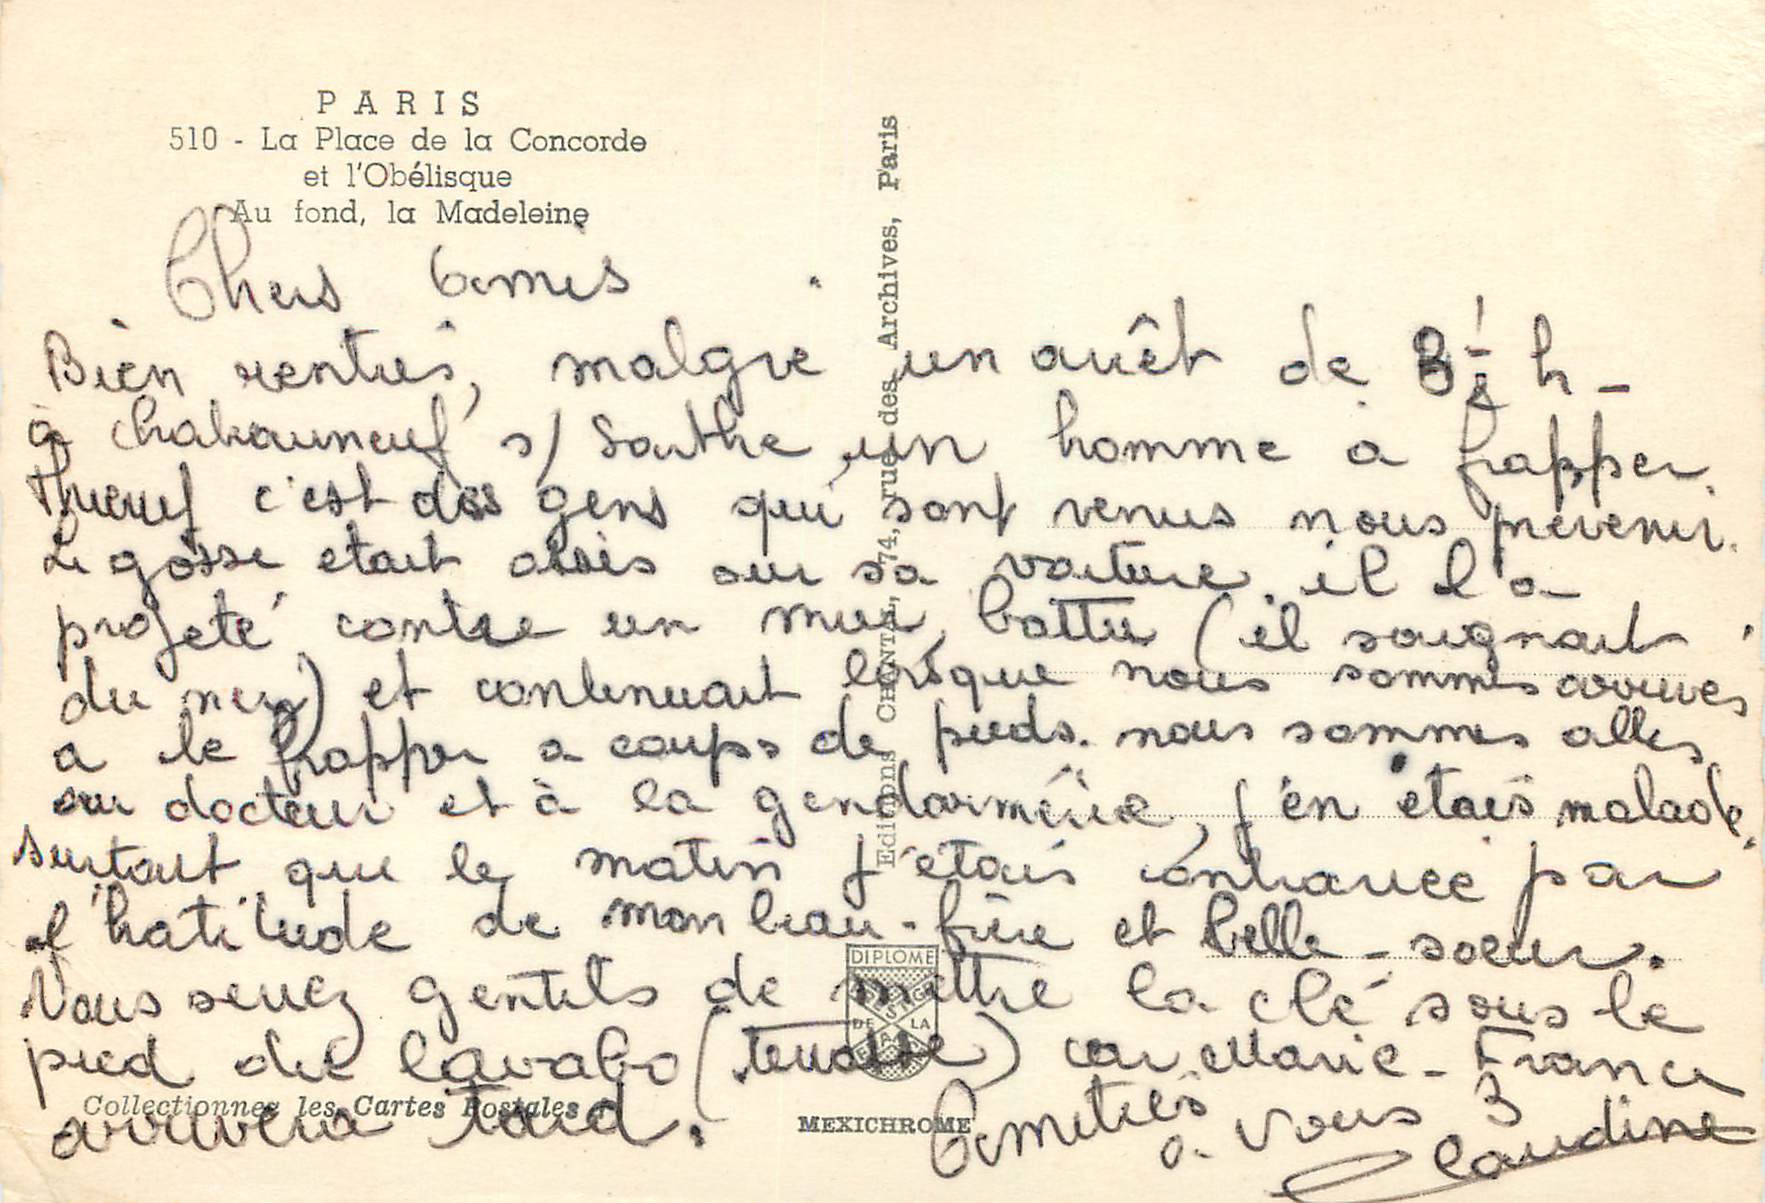 PARIS
510 - La Place de la Concorde
et l'Obélisque
Au fond, la Madeleine
Chers Amis
Bien rentrés, malgré un arrêt de 3 1/2 h -
à s/ Sarthe, un homme a frapper
c'est des gens qui sont venus nous prévenir.
Le gosse etait assis sur sa voiture, il l'a
projeté contre un mur, battu (il saignait
du nez) et continuait lorsque nous sommes arrivés
a le frapper a coups de pieds. nous sommes allés
au docteur et à la gendarmerie, j'en étais malade,
surtout que le matin j'étais par
l'hatitude de mon beau-frère et belle-soeur.
Vous serez gentils de mettre la clé sous le
pied du lavabo (terrasse) car Marie-France
arrivera tard.
Amitiés
à vous 3
Claudine
Editions CHANTAL, 74, rue des Archives, Paris
DIPLOME
DE LA
Collectionnez les Cartes Postales
MEXICHROME